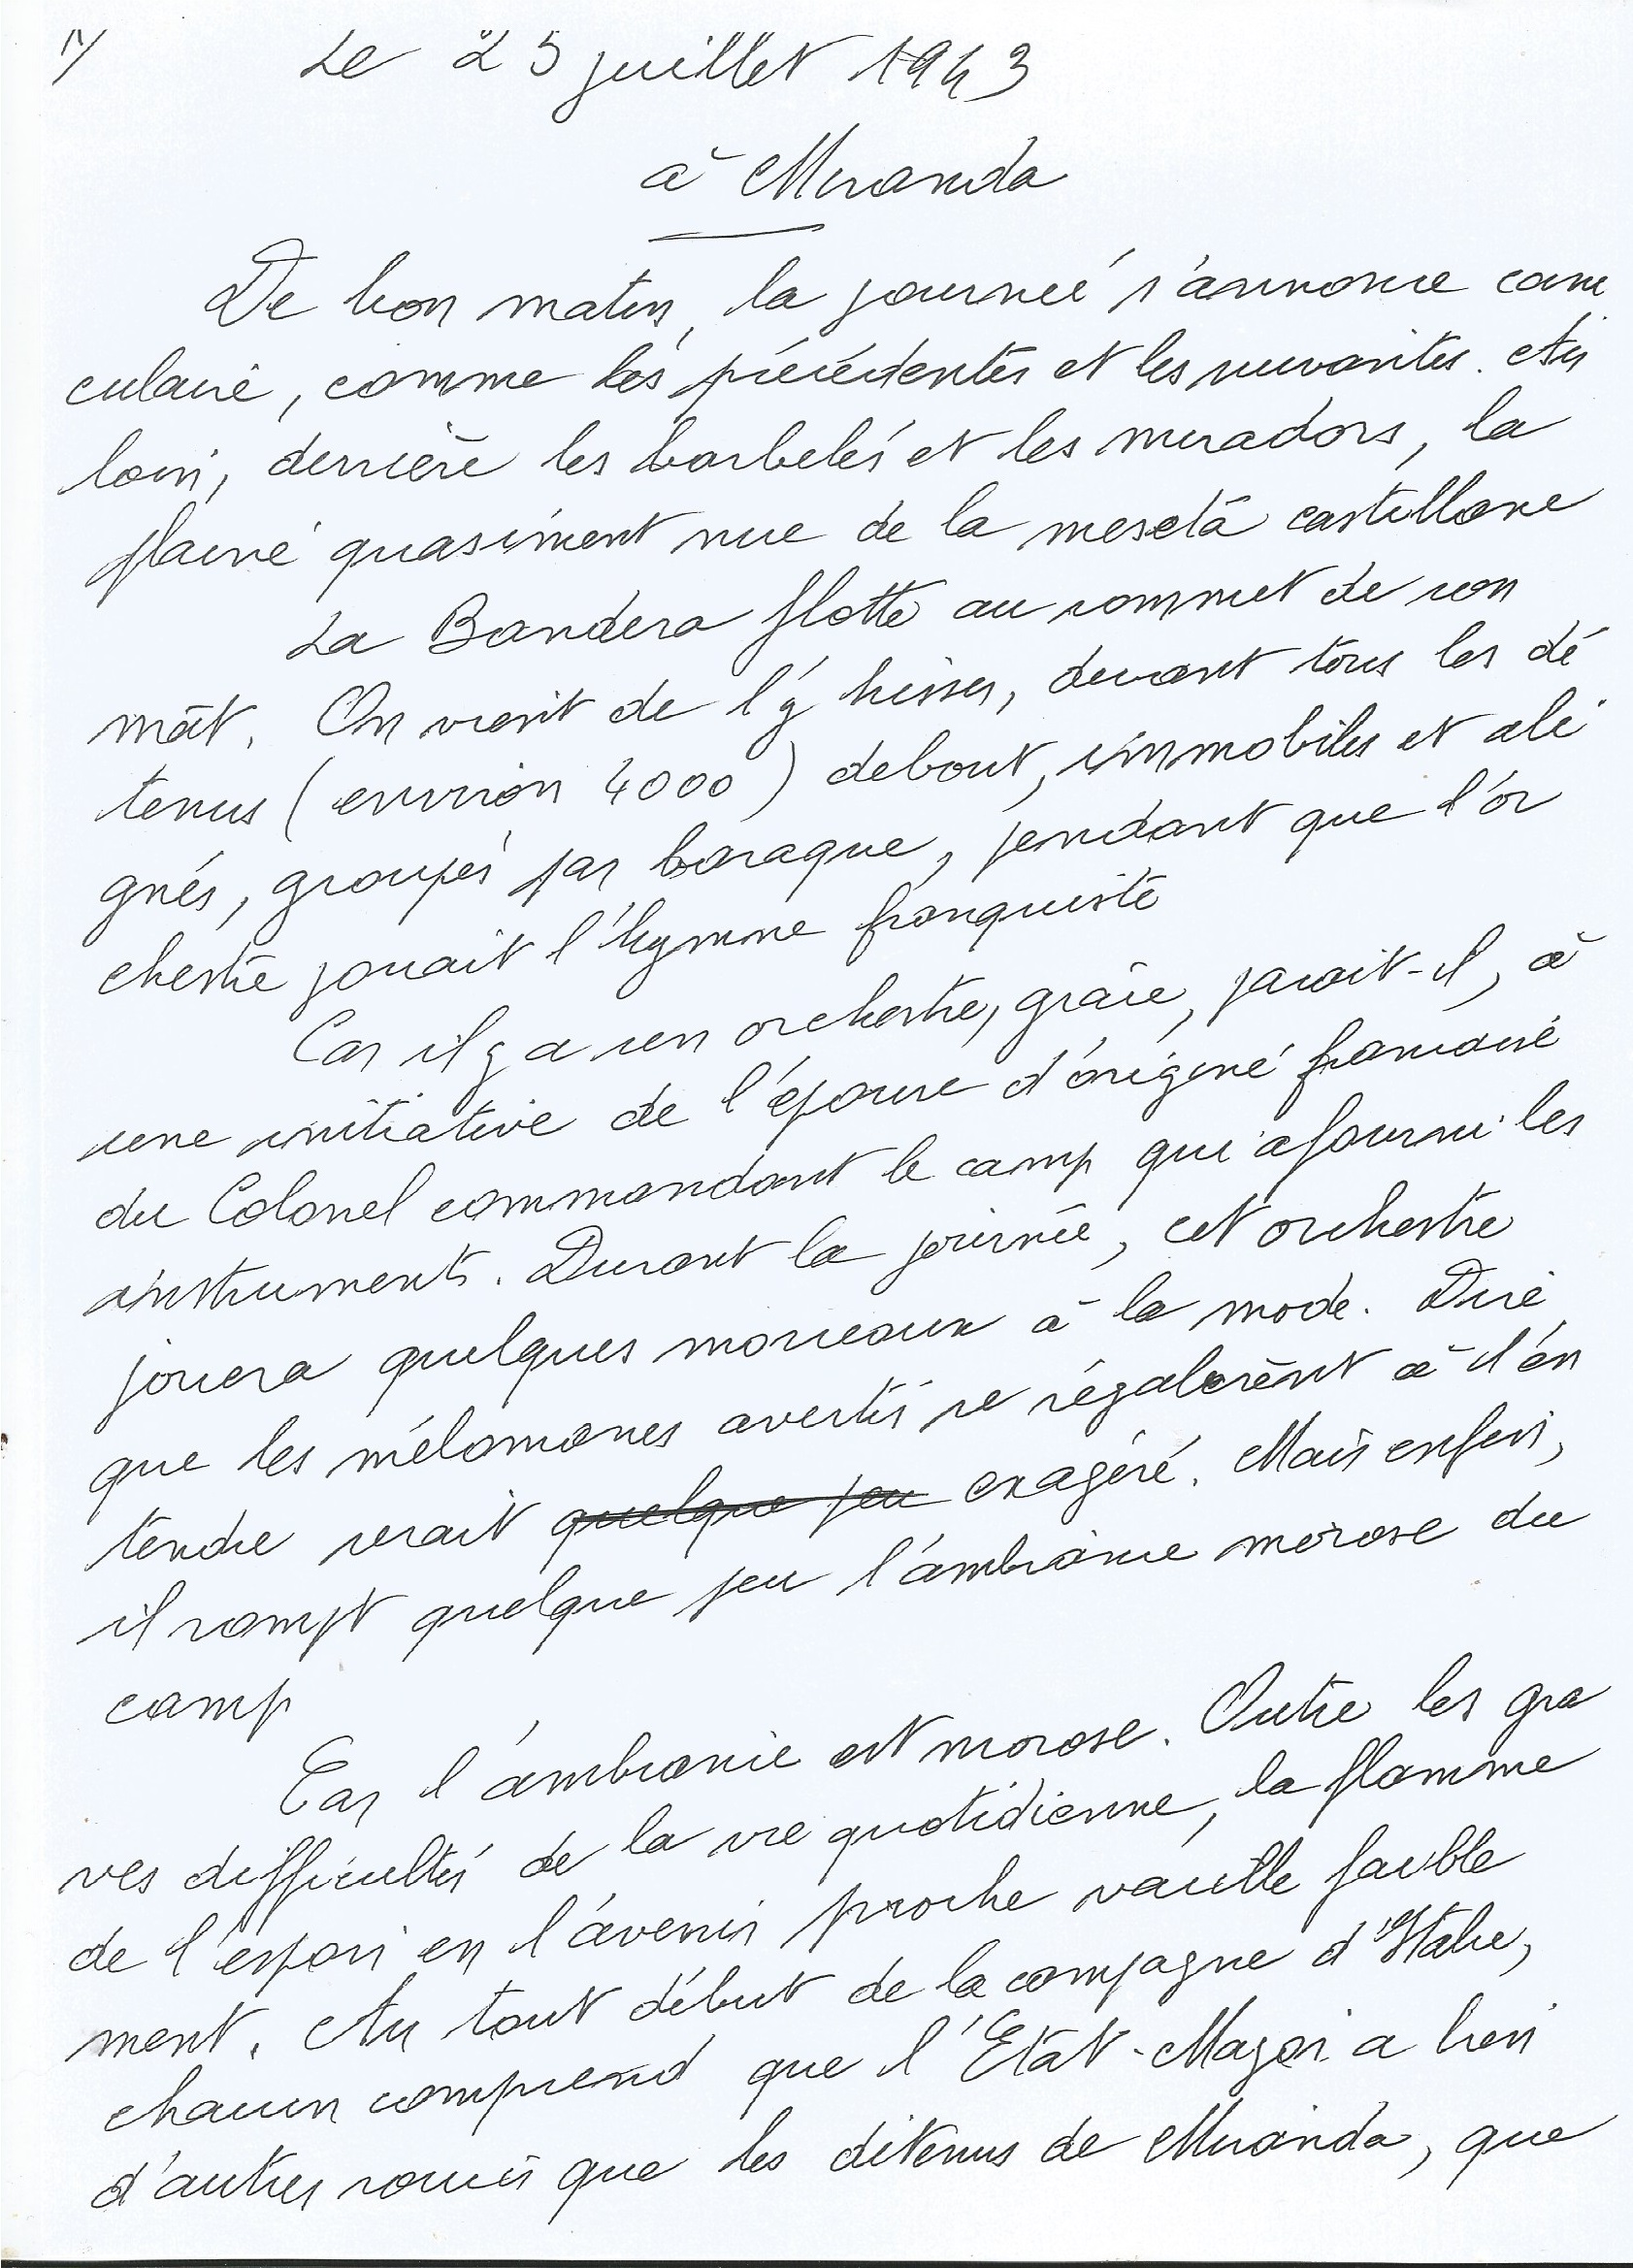 1/ Le 25 juillet 1943
à Miranda
De bon matin, la journée s'annonce cani
culaire, comme les précédentes et les suivantes. Au
loin, derrière les barbelés et les miradors, la
plaine quasiment nue de la meseta castillane
La Bandera flotte au sommet de son
mât. On vient de l'y hisser, devant tous les dé
tenus (environ 4000) debout, immobiles et ali
gnés, groupés par baraque, pendant que l'or
chestre jouait l'hymne franquiste
Car il y a un orchestre, grâce, paraît-il, à
une initiative de l'épouse d'origine française
du Colonel commandant le camp qui a fourni les
instruments. Durant la journée, cet orchestre
jouera quelques morceaux à la mode. Dire
que les mélomanes avertis se régalèrent à l'en
tendre serait quelque peu exagéré. Mais enfin,
il rompt quelque peu l'ambiance morose du
camp
Car l'ambiance est morose. Outre les gra
ves difficultés de la vie quotidienne, la flamme
de l'espoir en l'avenir proche vacille faible
ment. Au tout début de la campagne d'Italie,
chacun comprend que l'Etat-Major a bien
d'autres soucis que les détenus de Miranda, que